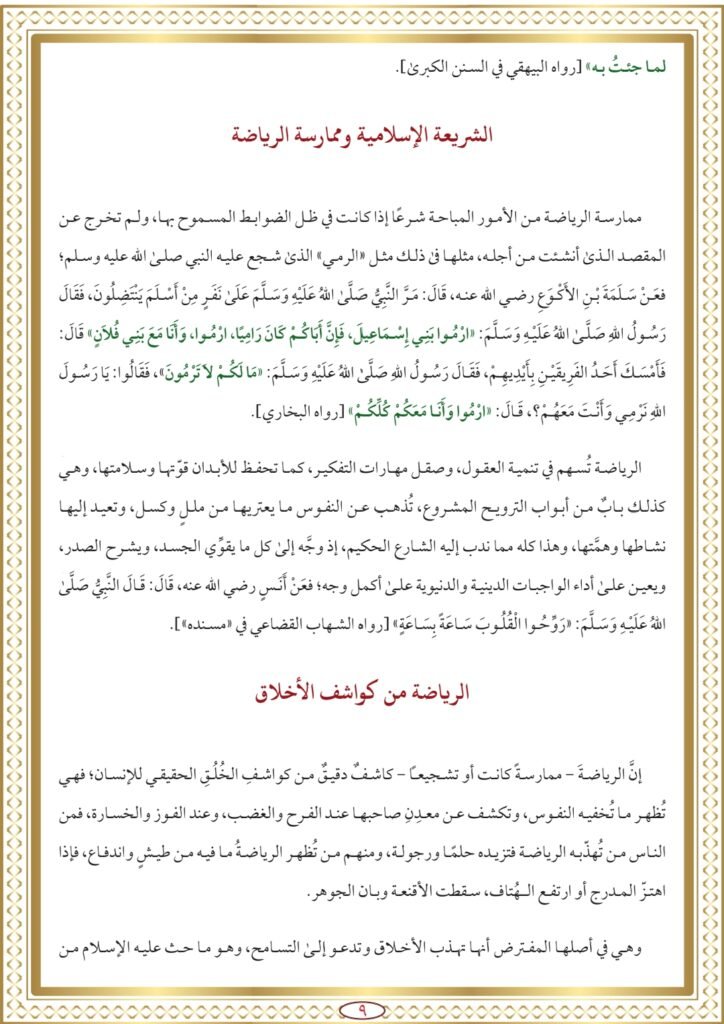 لما جئتُ به» [رواه البيهقي في السنن الكبرىٰ].
الشريعة الإسلامية وممارسة الرياضة
ممارسة الرياضة من الأمور المباحة شرعًا إذا كانت في ظل الضوابط المسموح بها، ولم تخرج عن
المقصد الذىٰ أنشئت من أجله، مثلها فىٰ ذلك مثل «الرمي» الذىٰ شجع عليه النبي صلىٰ الله عليه وسلم؛
فعَنْ سَلَمَةَ بْنِ الأَكْوَعِ رضي الله عنه، قَالَ: مَرَّ النَّبِيُّ صَلَّىٰ اللهُ عَلَيْهِ وَسَلَّمَ عَلَىٰ نَفَرٍ مِنْ أَسْلَمَ يَنْتَضِلُونَ، فَقَالَ
رَسُولُ اللهِ صَلَّىٰ اللهُ عَلَيْهِ وَسَلَّمَ: «ارْمُوا بَنِي إِسْمَاعِيلَ، فَإِنَّ أَبَاكُمْ كَانَ رَامِيًا، ارْمُوا، وَأَنَا مَعَ بَنِي فُلاَنٍ» قَالَ:
فَأَمْسَكَ أَحَدُ الفَرِيقَيْنِ بِأَيْدِيهِمْ، فَقَالَ رَسُولُ اللهِ صَلَّىٰ اللهُ عَلَيْهِ وَسَلَّمَ: «مَا لَكُمْ لاَ تَرْمُونَ»، فَقَالُوا: يَا رَسُولَ
اللهِ نَرْمِي وَأَنْتَ مَعَهُمْ؟، قَالَ: «ارْمُوا وَأَنَا مَعَكُمْ كُلِّكُمْ» [رواه البخاري].
الرياضة تُسهم في تنمية العقول، وصقل مهارات التفكير، كما تحفظ للأبدان قوّتها وسلامتها، وهي
كذلك بابٌ من أبواب الترويح المشروع، تُذهب عن النفوس ما يعتريها من مللٍ وكسل، وتعيد إليها
نشاطها وهمَّتها، وهذا كله مما ندب إليه الشارع الحكيم، إذ وجَّه إلىٰ كل ما يقوِّي الجسد، ويشرح الصدر،
ويعين علىٰ أداء الواجبات الدينية والدنيوية علىٰ أكمل وجه؛ فعَنْ أَنَسٍ رضي الله عنه، قَالَ: قَالَ النَّبِيُّ صَلَّىٰ
اللهُ عَلَيْهِ وَسَلَّمَ: «رَوِّحُوا الْقُلُوبَ سَاعَةً بِسَاعَةٍ» [رواه الشهاب القضاعي في «مسنده»].
الرياضة من كواشف الأخلاق
إنَّ الرياضةَ – ممارسةً كانت أو تشجيعًا – كاشفٌ دقيقٌ من كواشفِ الخُلُقِ الحقيقي للإنسان؛ فهي
تُظهر ما تُخفيه النفوس، وتكشف عن معدِنِ صاحبها عند الفرح والغضب، وعند الفوز والخسارة، فمن
الناس من تُهذّبه الرياضة فتزيده حلمًا ورجولة، ومنهم من تُظهر الرياضةُ ما فيه من طيشٍ واندفاع، فإذا
اهتزّ المدرج أو ارتفع الـهُتاف، سقطت الأقنعة وبان الجوهر.
وهي في أصلها المفترض أنها تهذب الأخلاق وتدعو إلىٰ التسامح، وهو ما حث عليه الإسلام من
٩